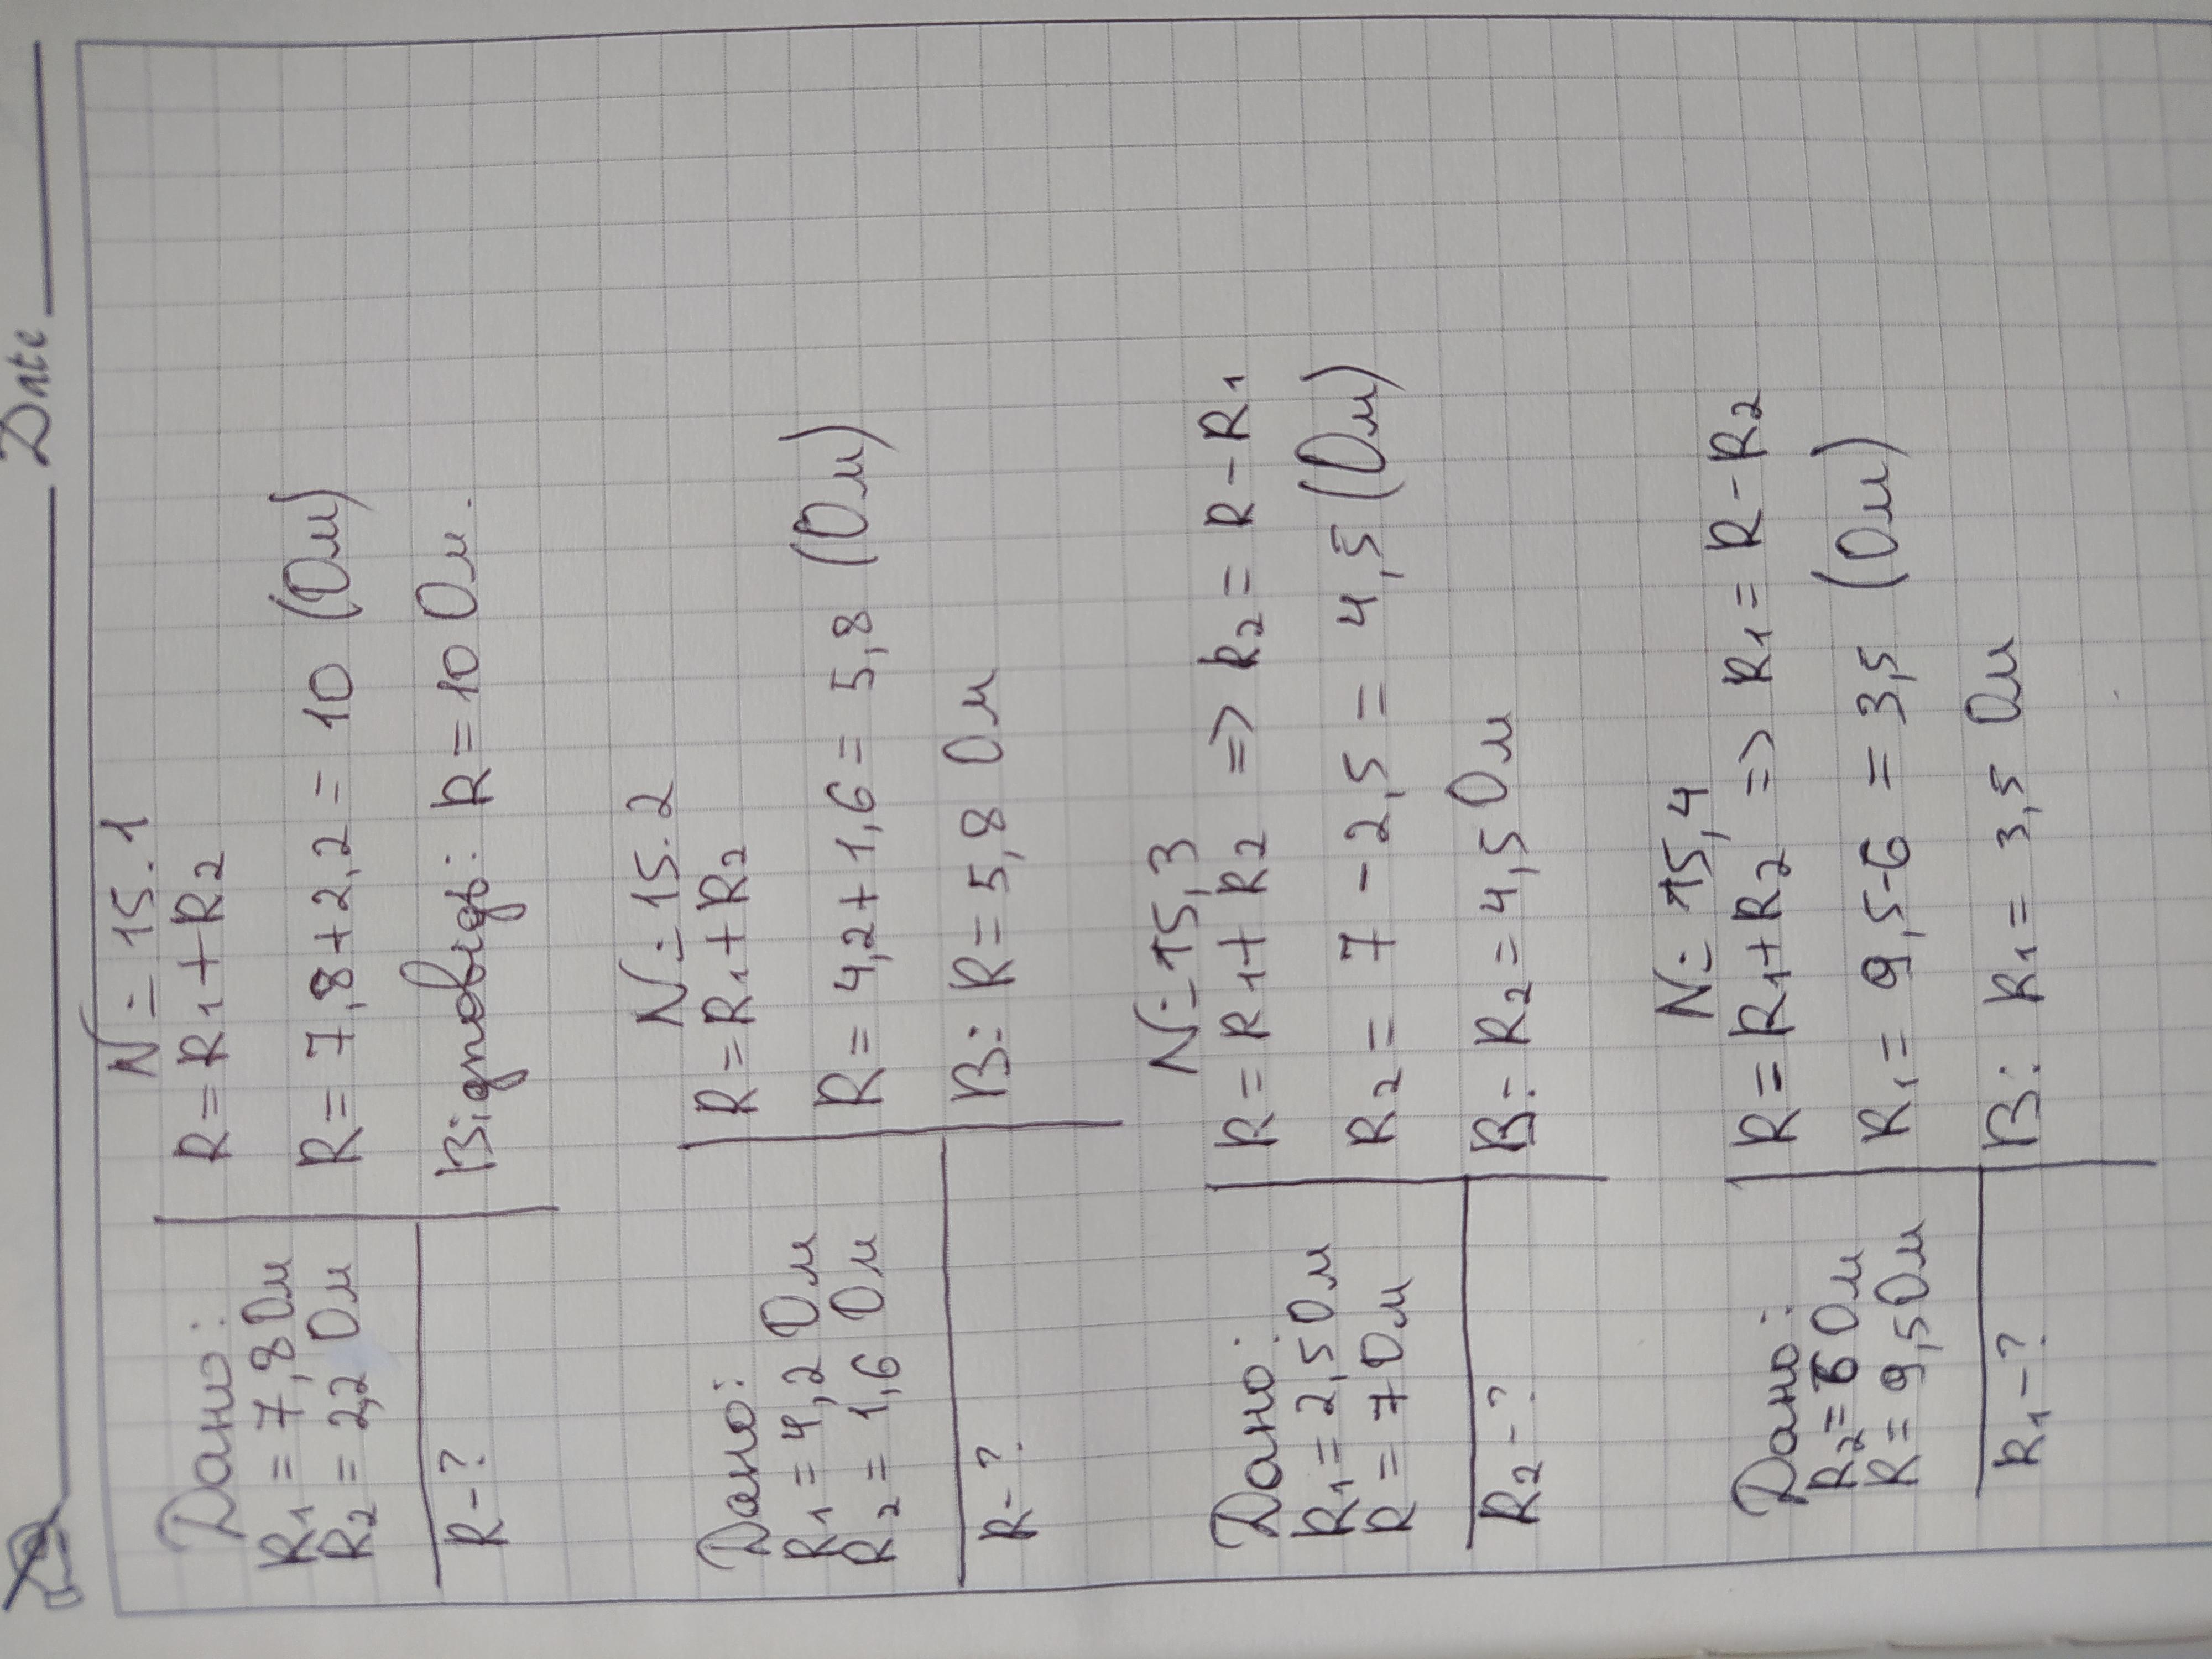 Date
№ 15.1
Дано:
R₁ = 7,8 Ом
R₂ = 2,2 Ом
R - ?
R = R₁ + R₂
R = 7,8 + 2,2 = 10 (Ом)
Відповідь: R = 10 Ом.
№ 15.2
Дано:
R₁ = 4,2 Ом
R₂ = 1,6 Ом
R - ?
R = R₁ + R₂
R = 4,2 + 1,6 = 5,8 (Ом)
В: R = 5,8 Ом
№ 15,3
Дано:
R₁ = 2,5 Ом
R = 7 Ом
R₂ - ?
R = R₁ + R₂ => R₂ = R - R₁
R₂ = 7 - 2,5 = 4,5 (Ом)
В: R₂ = 4,5 Ом
№ 15,4
Дано:
R₂ = 6 Ом
R = 9,5 Ом
R₁ - ?
R = R₁ + R₂ => R₁ = R - R₂
R₁ = 9,5 - 6 = 3,5 (Ом)
В: R₁ = 3,5 Ом